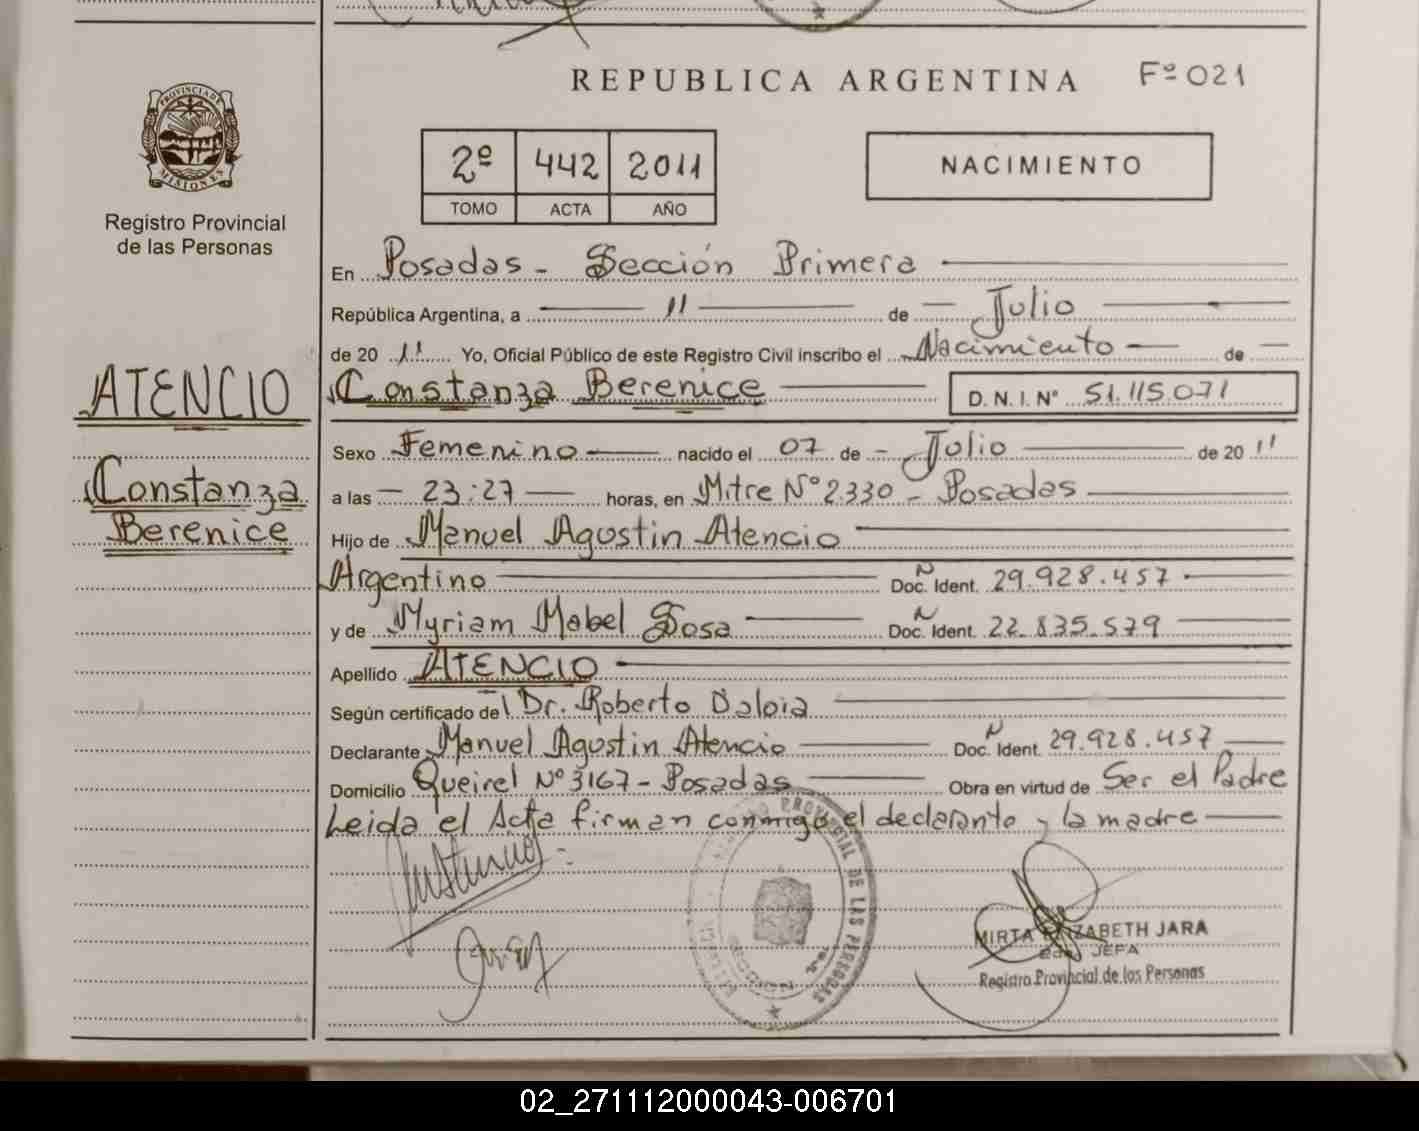 REPUBLICA ARGENTINA Fº 021
PROVINCIA DE MISIONES
Registro Provincial
de las Personas
2º 442 2011
TOMO ACTA AÑO
NACIMIENTO
En Posadas - Sección Primera
República Argentina, a 11 de Julio
de 20 11 Yo, Oficial Público de este Registro Civil inscribo el Nacimiento de
Constanza Berenice D. N. I. Nº 51.115.071
ATENCIO
Constanza
Berenice
Sexo Femenino nacido el 07 de Julio de 20 11
a las 23:27 horas, en Mitre Nº 2330 - Posadas
Hijo de Manuel Agustin Atencio
Argentino Doc. Ident. 29.928.457
y de Myriam Mabel Sosa Doc. Ident. 22.835.579
Apellido ATENCIO
Según certificado del Dr. Roberto Daloia
Declarante Manuel Agustin Atencio Doc. Ident. 29.928.457
Domicilio Queirel Nº 3167 - Posadas Obra en virtud de Ser el Padre
Leida el Acta firman conmigo el declarante y la madre
PROVINCIAL DE LAS PERSONAS
MIRTA ELIZABETH JARA
JEFA
Registro Provincial de las Personas
02_271112000043-006701